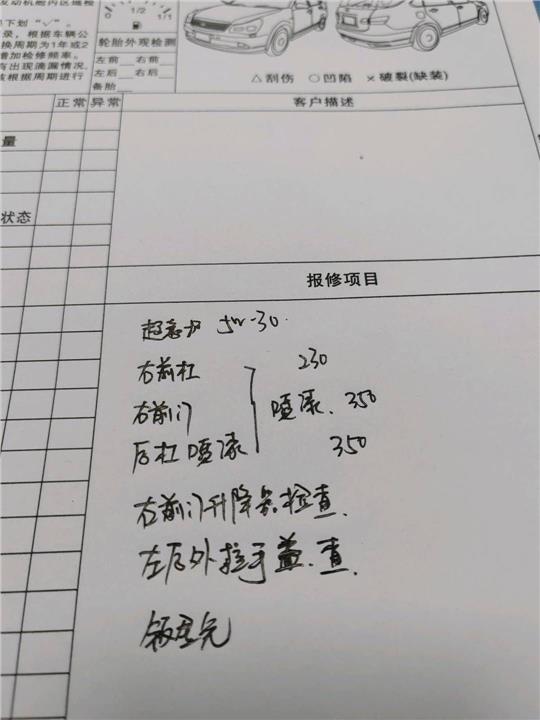 下划“√”。
录，根据车辆公
换周期为1年或2
增加检修频率。
有出现滴漏情况,
根据周期进行
1/2
1/1
轮胎外观检测
左前 右前
左后 右后
备胎
△刮伤 ○凹陷 ×破裂(缺装)
正常 异常
客户描述
量
状态
报修项目
5w-30.
右前杠 230
右前门 喷漆. 350
后杠喷漆 350
右前门升降器检查.
左后外拉手盖.查.